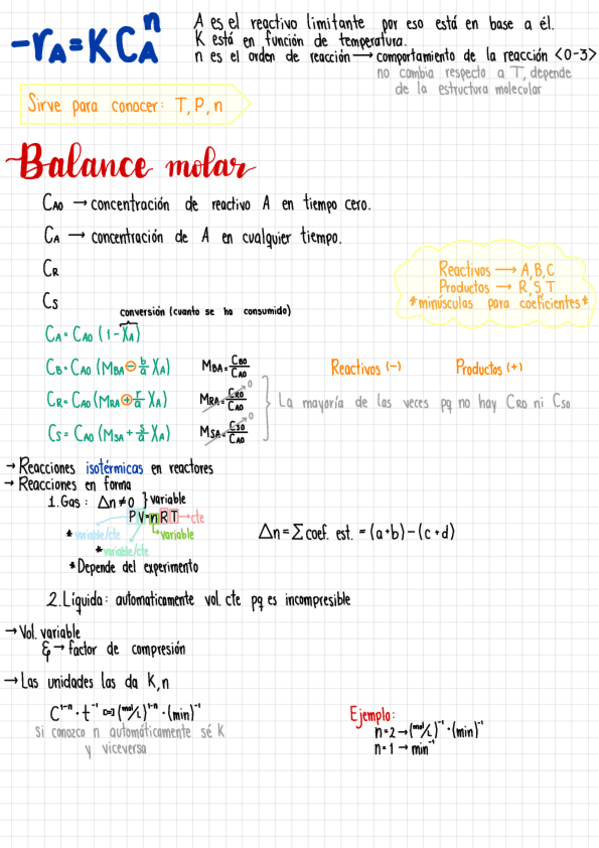 -rA = K CAⁿ
A es el reactivo limitante por eso está en base a él.
K está en función de temperatura.
n es el orden de reacción → comportamiento de la reacción <0-3>
no cambia respecto a T, depende
de la estructura molecular
Sirve para conocer: T, P, n
Balance molar
CAO → concentración de reactivo A en tiempo cero.
CA → concentración de A en cualquier tiempo.
CR
CS
Reactivos → A, B, C
Productos → R, S, T
*minúsculas para coeficientes*
conversión (cuanto se ha consumido)
CA = CAO (1 - XA)
CB = CAO (MBA - b/a XA) MBA = CBO/CAO Reactivos (-) Productos (+)
CR = CAO (MRA + r/a XA) MRA = CRO/CAO 0
La mayoría de las veces pq no hay CRO ni CSO
CS = CAO (MSA + s/a XA) MSA = CSO/CAO 0
→ Reacciones isotérmicas en reactores
→ Reacciones en forma
1. Gas: Δn ≠ 0 } variable
PV = nRT → cte
* variable/cte ↳ variable
* variable/cte
Δn = Σ coef. est. = (a+b) - (c+d)
*Depende del experimento
2. Líquida: automaticamente vol. cte pq es incompresible
→ Vol. variable
ξ → factor de compresión
→ Las unidades las da K, n
C¹⁻ⁿ · t⁻¹ [=] (mol/L)¹⁻ⁿ · (min)⁻¹
Si conozco n automáticamente sé K
y viceversa
Ejemplo:
n=2 → (mol/L)⁻¹ · (min)⁻¹
n=1 → min⁻¹